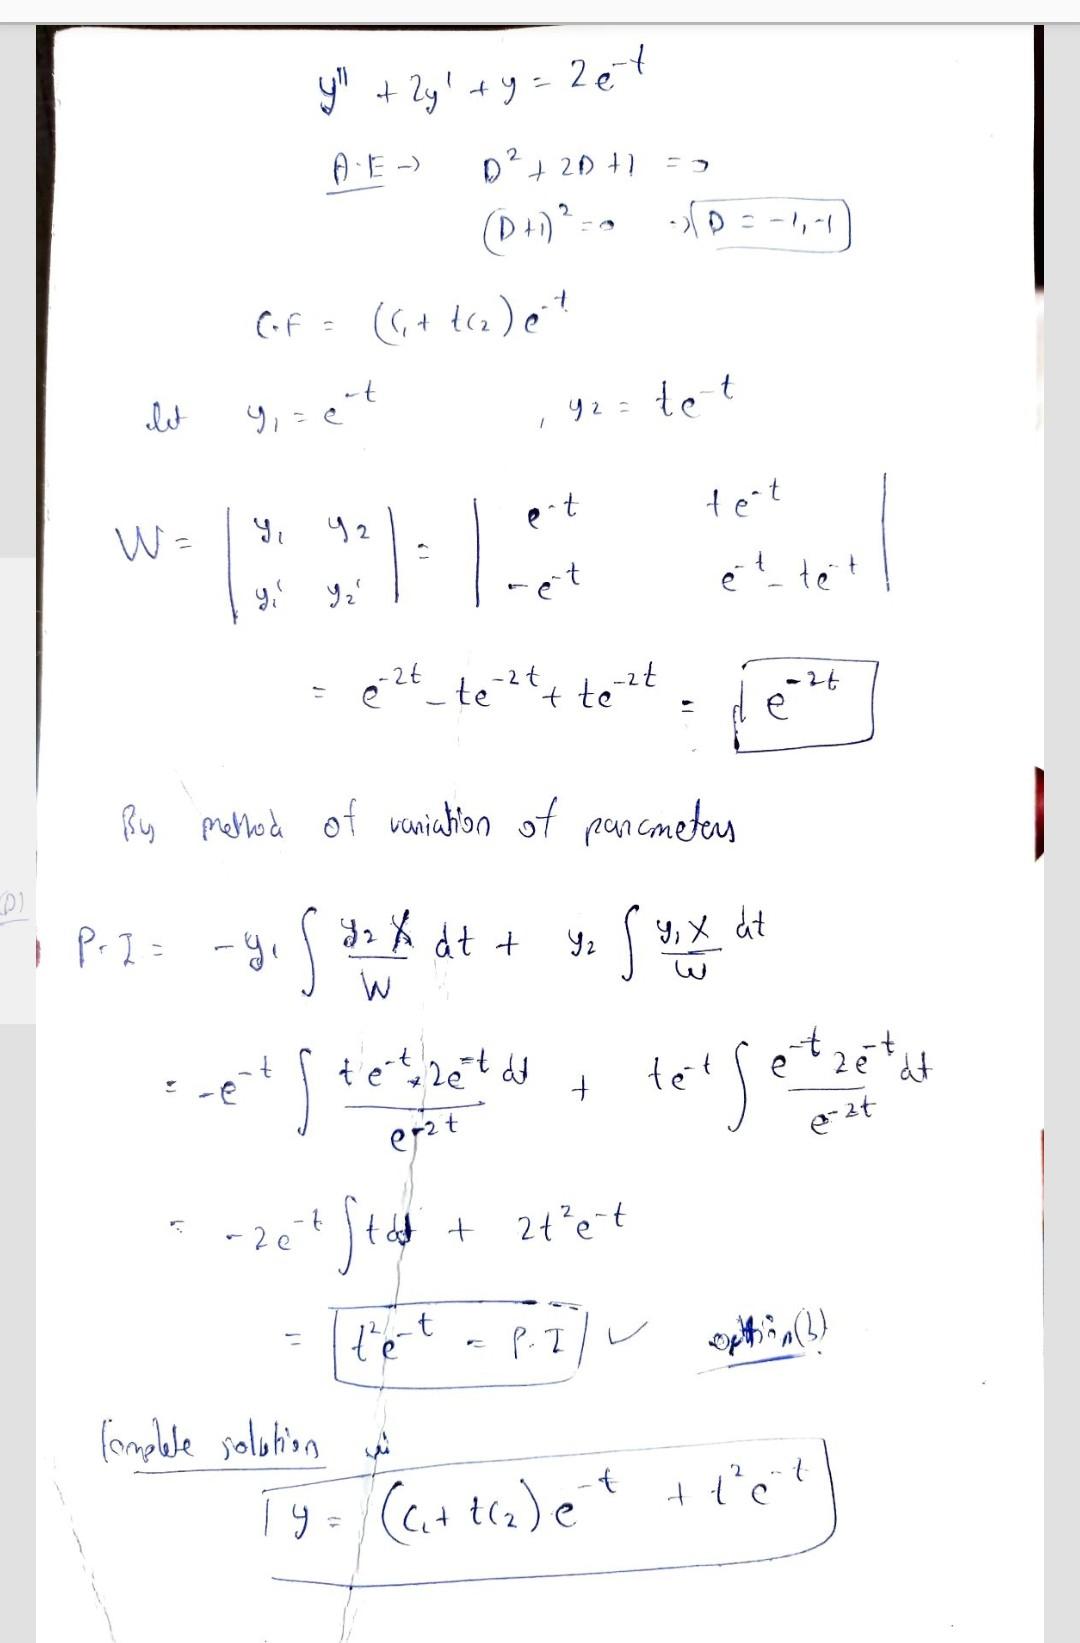 y'' + 2y' + y = 2e^-t
A.E → D² + 2D + 1 = 0
(D+1)² = 0 → D = -1, -1
C.F = (C₁ + tC₂) e^-t
let y₁ = e^-t , y₂ = te^-t
W = | y₁ y₂ | = | e^-t te^-t |
| y₁' y₂' | | -e^-t e^-t - te^-t |
= e^-2t - te^-2t + te^-2t = e^-2t
By method of variation of parameters
P.I = -y₁ ∫ y₂ X / W dt + y₂ ∫ y₁ X / W dt
= -e^-t ∫ te^-t × 2e^-t dt / e^-2t + te^-t ∫ e^-t 2e^-t dt / e^-2t
= -2e^-t ∫ t dt + 2t²e^-t
= t²e^-t = P.I ✓ option (b)
Complete solution
y = (C₁ + tC₂) e^-t + t²e^-t